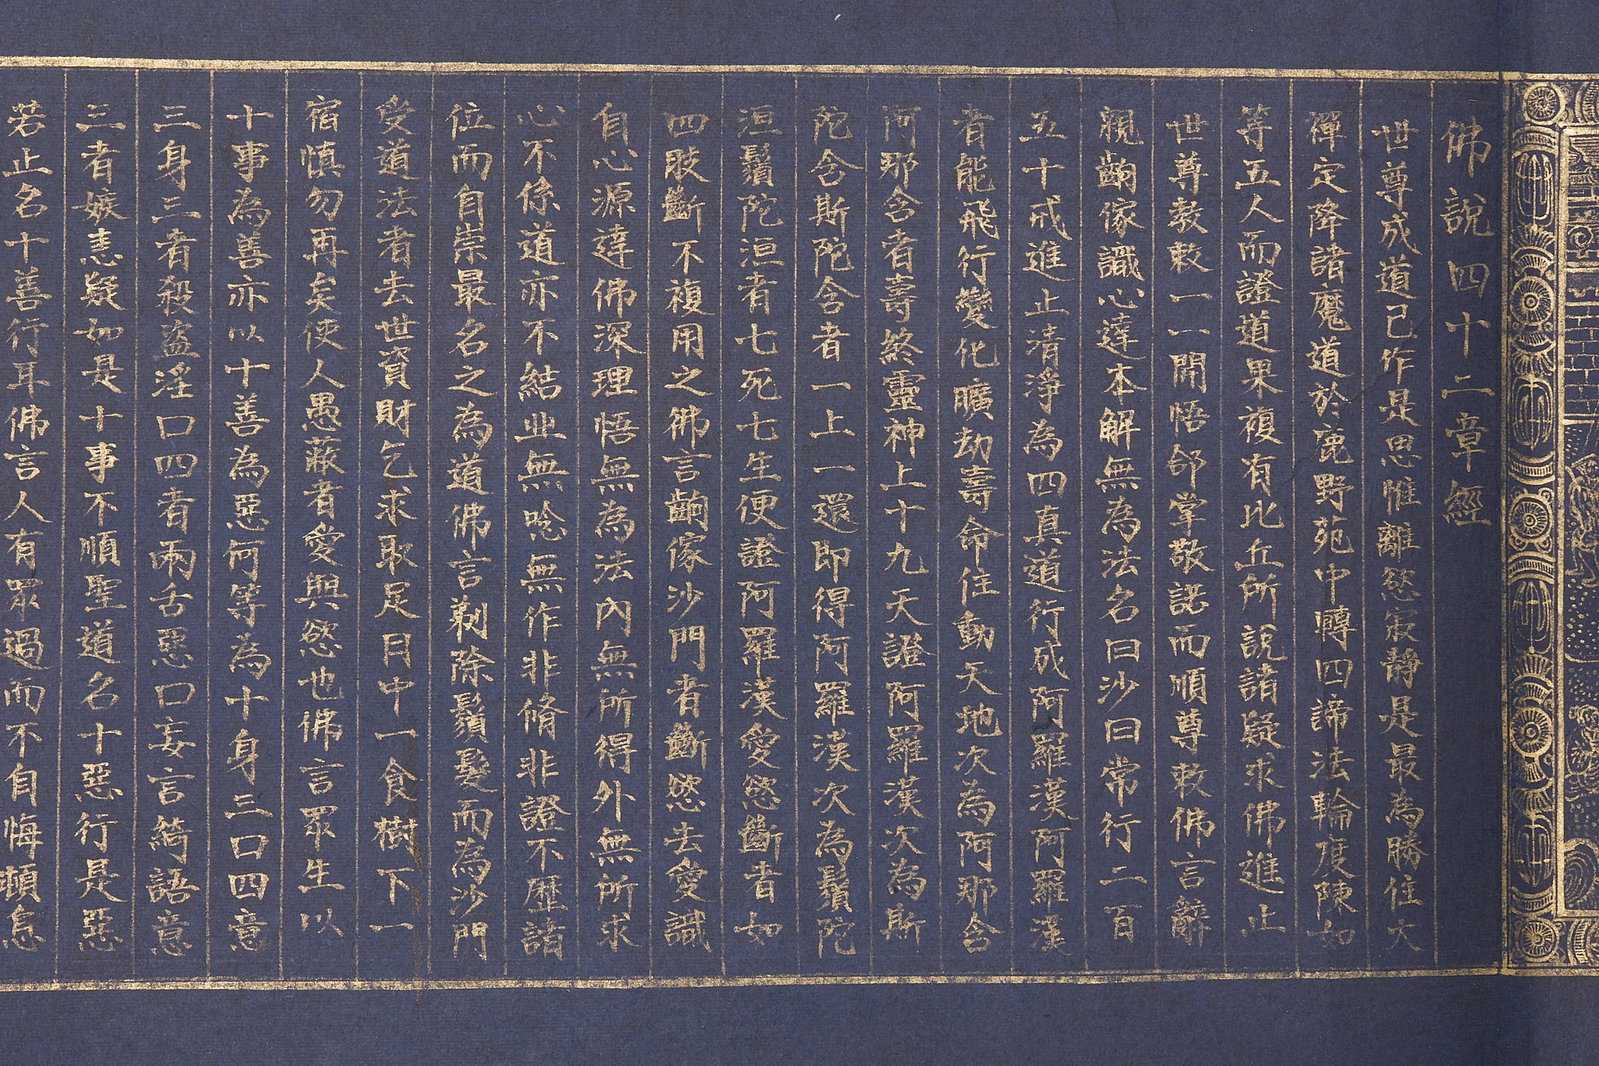 佛說四十二章經
世尊成道已作是思惟離慾寂靜是最為勝住大
禪定降諸魔道於鹿野苑中轉四諦法輪度陳如
等五人而證道果複有比丘所說諸疑求佛進止
世尊教敕一一開悟郃掌敬諾而順尊敕佛言辭
親齣傢識心達本解無為法名曰沙曰常行二百
五十戒進止清淨為四真道行成阿羅漢阿羅漢
者能飛行變化曠劫壽命住動天地次為阿那含
阿那含者壽終靈神上十九天證阿羅漢次為斯
陀含斯陀含者一上一還即得阿羅漢次為鬚陀
洹鬚陀洹者七死七生便證阿羅漢愛慾斷者如
四肢斷不複用之佛言齣傢沙門者斷慾去愛識
自心源達佛深理悟無為法內無所得外無所求
心不係道亦不結业無唸無作非脩非證不歷諸
位而自崇最名之為道佛言剃除鬚髮而為沙門
受道法者去世資財乞求取足日中一食樹下一
宿慎勿再矣使人愚蔽者愛與慾也佛言眾生以
十事為善亦以十善為惡何等為十身三口四意
三身三者殺盜淫口四者兩舌惡口妄言綺語意
三者嫉恚疑如是十事不順聖道名十惡行是惡
若止名十善行耳佛言人有眾過而不自悔頓息